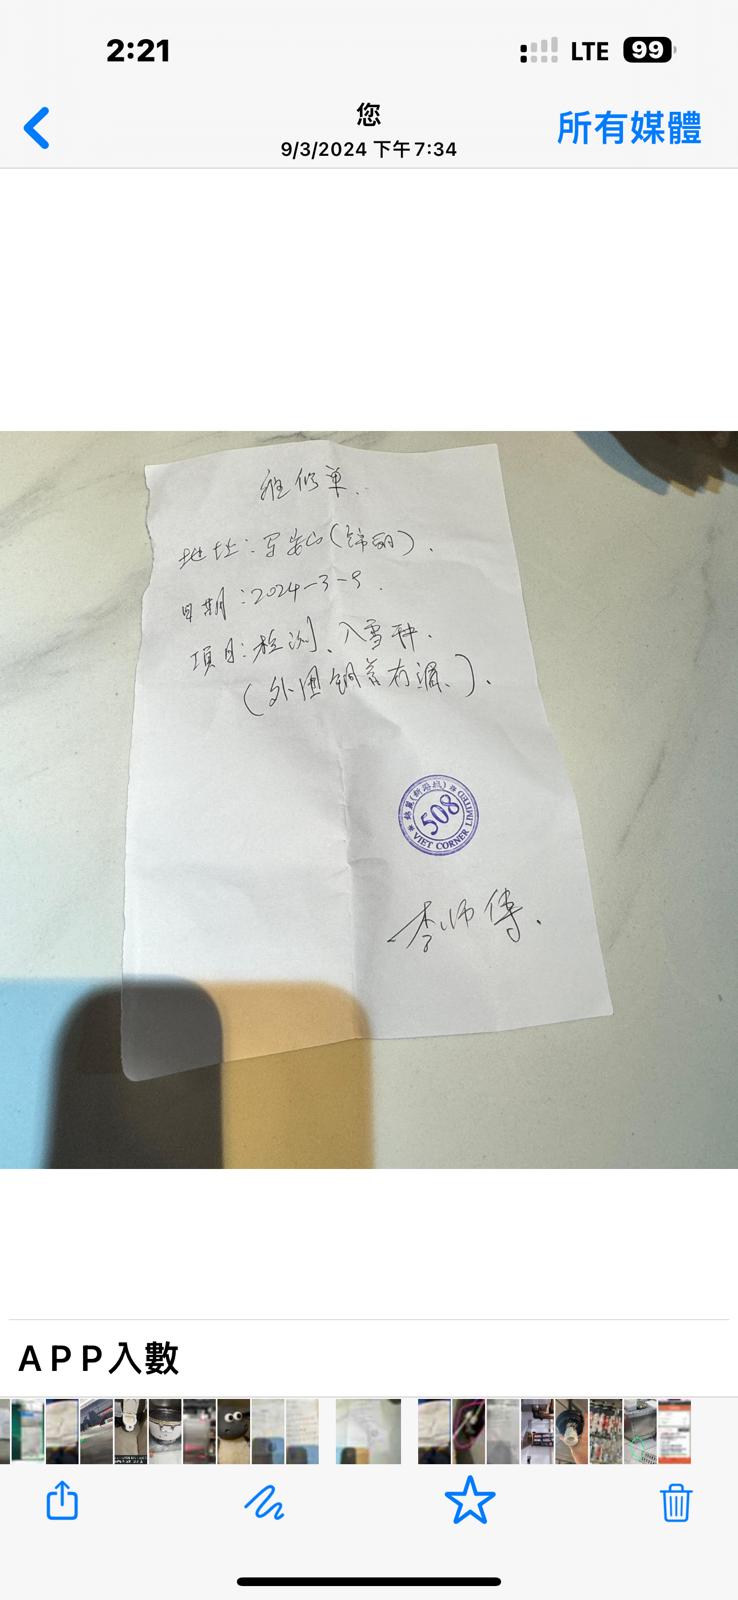 2:21
LTE 99
您
9/3/2024 下午7:34
所有媒體
维修单.
地址:马鞍山(锦丽).
日期:2024-3-9.
項目:检测、入雪种.
(外围铜管有漏、).
508
VIET CORNER LIMITED
李师傅.
APP入數